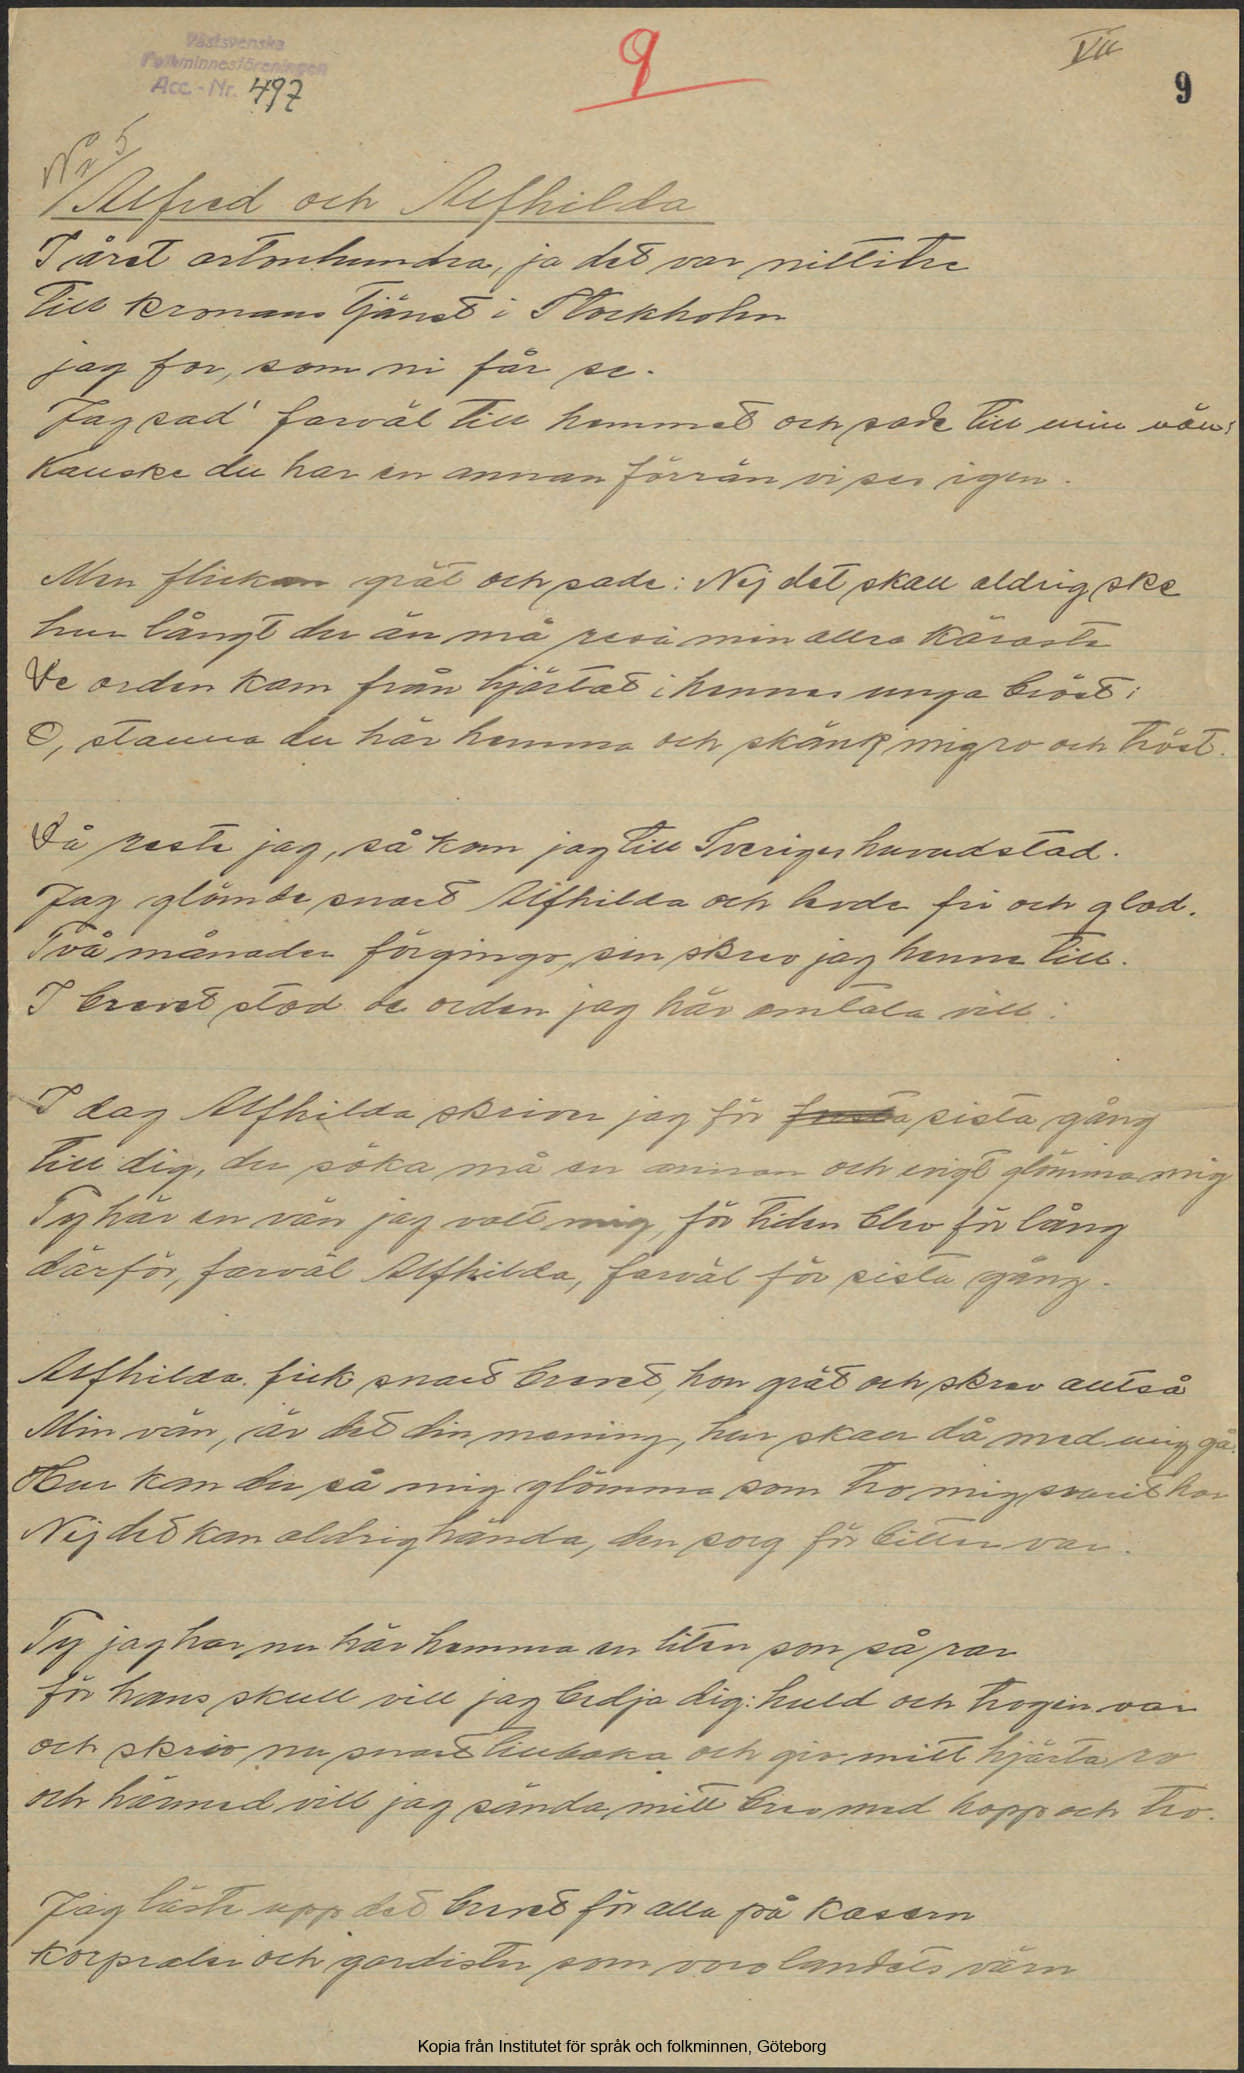 Västsvenska
Folkminnesföreningen
Acc.-Nr. 497
9
VII
9
Nr 5
Alfred och Alfhilda
I året artonhundra, ja det var nittitre
till kronans tjänst i Stockholm
jag for, som ni får se.
Jag sad' farväl till hemmet och sade till min vän:
Kanske du har en annan förrän vi ses igen.
Men flickan grät och sade: Nej det skall aldrig ske
hur långt du än må resa min allra käraste
De orden kom från hjärtat i hennes unga bröst:
O, stanna du här hemma och skänk mig ro och tröst.
Så reste jag, så kom jag till Sveriges huvudstad.
Jag glömde snart Alfhilda och levde fri och glad.
Två månader förgingo, sen skrev jag henne till.
I brevet stod de orden jag här omtala vill:
I dag Alfhilda skriver jag för första sista gång
till dig, du söka må en annan och evigt glömma mig
Ty här en vän jag valt mig, för tiden blev för lång
därför, farväl Alfhilda, farväl för sista gång.
Alfhilda fick snart brevet, hon grät och skrev alltså
Min vän, är det din mening, hur skall då med mig gå.
Hur kan du så mig glömma som tro mig svurit har
Nej det kan aldrig hända, den sorg för bitter var.
Ty jag har nu här hemma en liten son så rar
för hans skull vill jag bedja dig: huld och trogen var
och skriv nu snart tillbaka och giv mitt hjärta ro
och härmed vill jag sända mitt brev med hopp och tro.
Jag läste upp det brevet för alla på kasern
korpraler och gardister som voro landets värn
Kopia från Institutet för språk och folkminnen, Göteborg